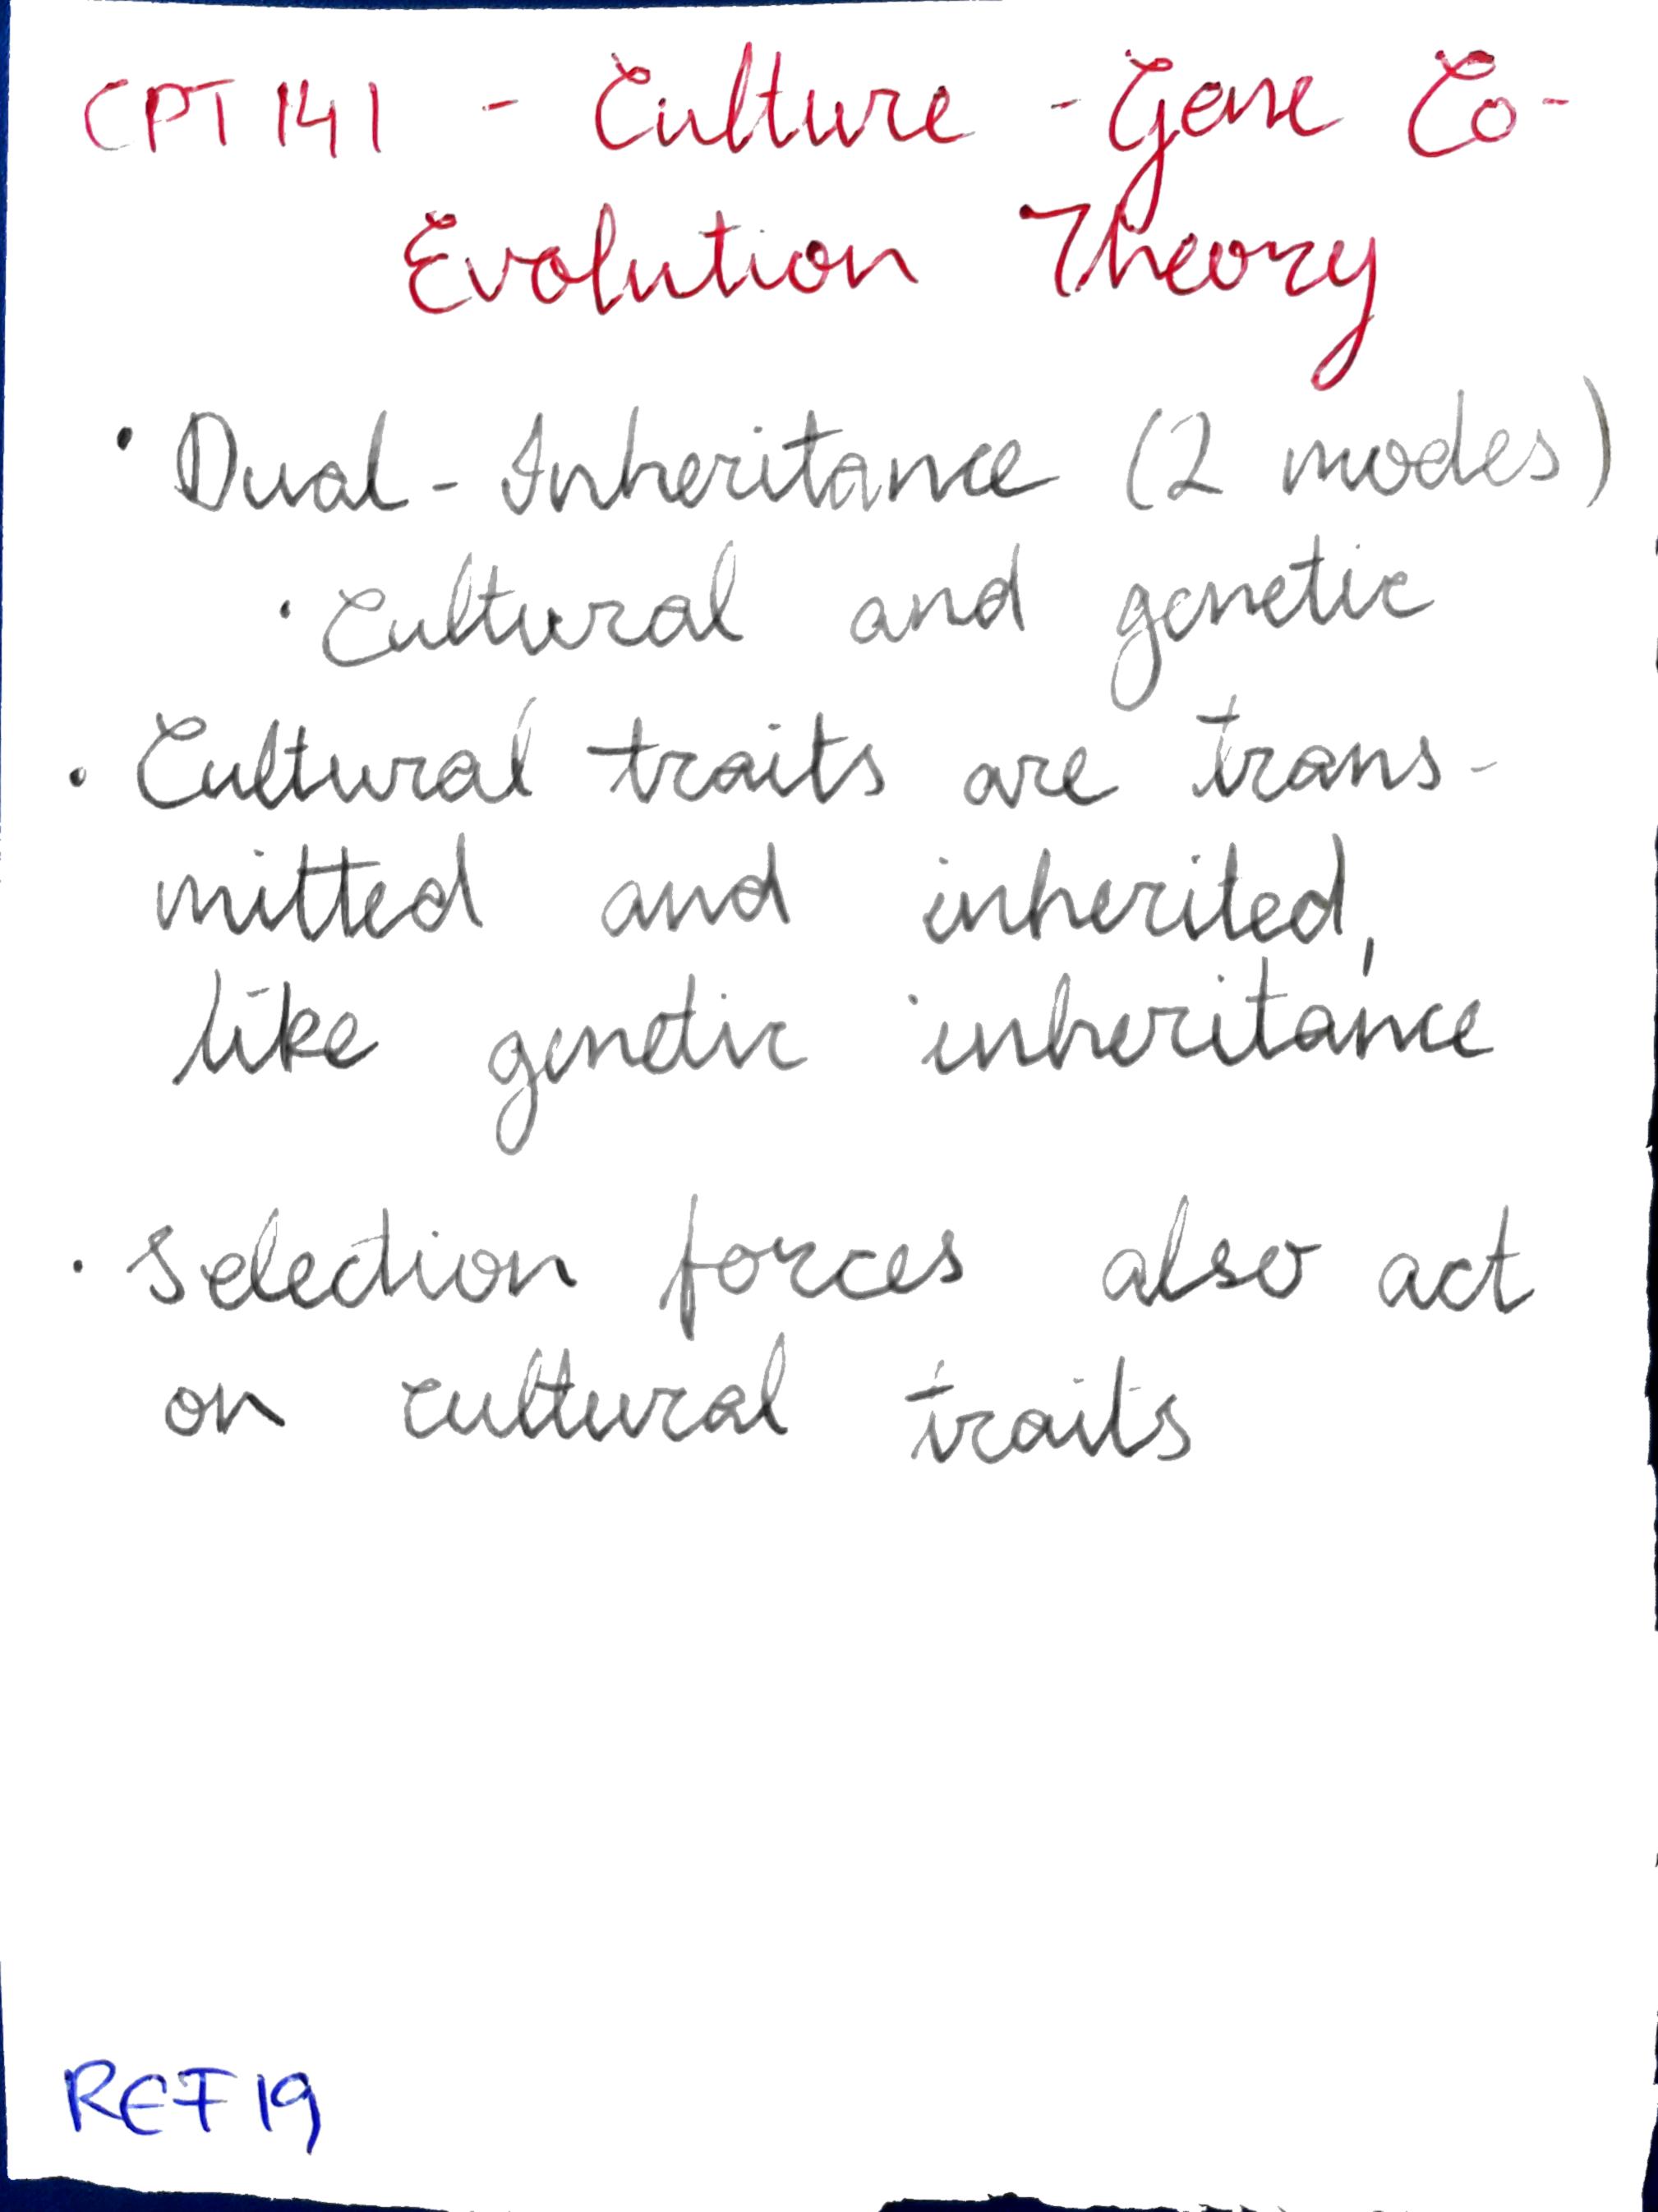 CPT141 - Culture-Gene Co-
Evolution Theory
• Dual-Inheritance (2 modes)
• Cultural and genetic
• Cultural traits are trans-
mitted and inherited,
like genetic inheritance
• Selection forces also act
on cultural traits
REF19